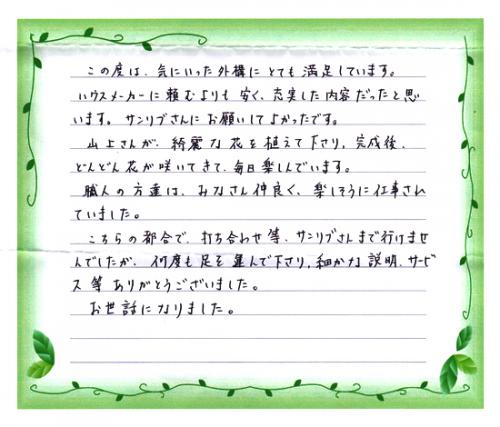 この度は、気にいった外構にとても満足しています。
ハウスメーカーに頼むよりも安く、充実した内容だったと思
います。サンリブさんにお願いしてよかったです。
山上さんが、綺麗な花を植えて下さり、完成後、
どんどん花が咲いてきて、毎日楽しんでいます。
職人の方達は、みなさん仲良く、楽しそうに仕事され
ていました。
こちらの都合で、打ち合わせ等、サンリブさんまで行けませ
んでしたが、何度も足を運んで下さり、細かな説明、サービ
ス等ありがとうございました。
お世話になりました。